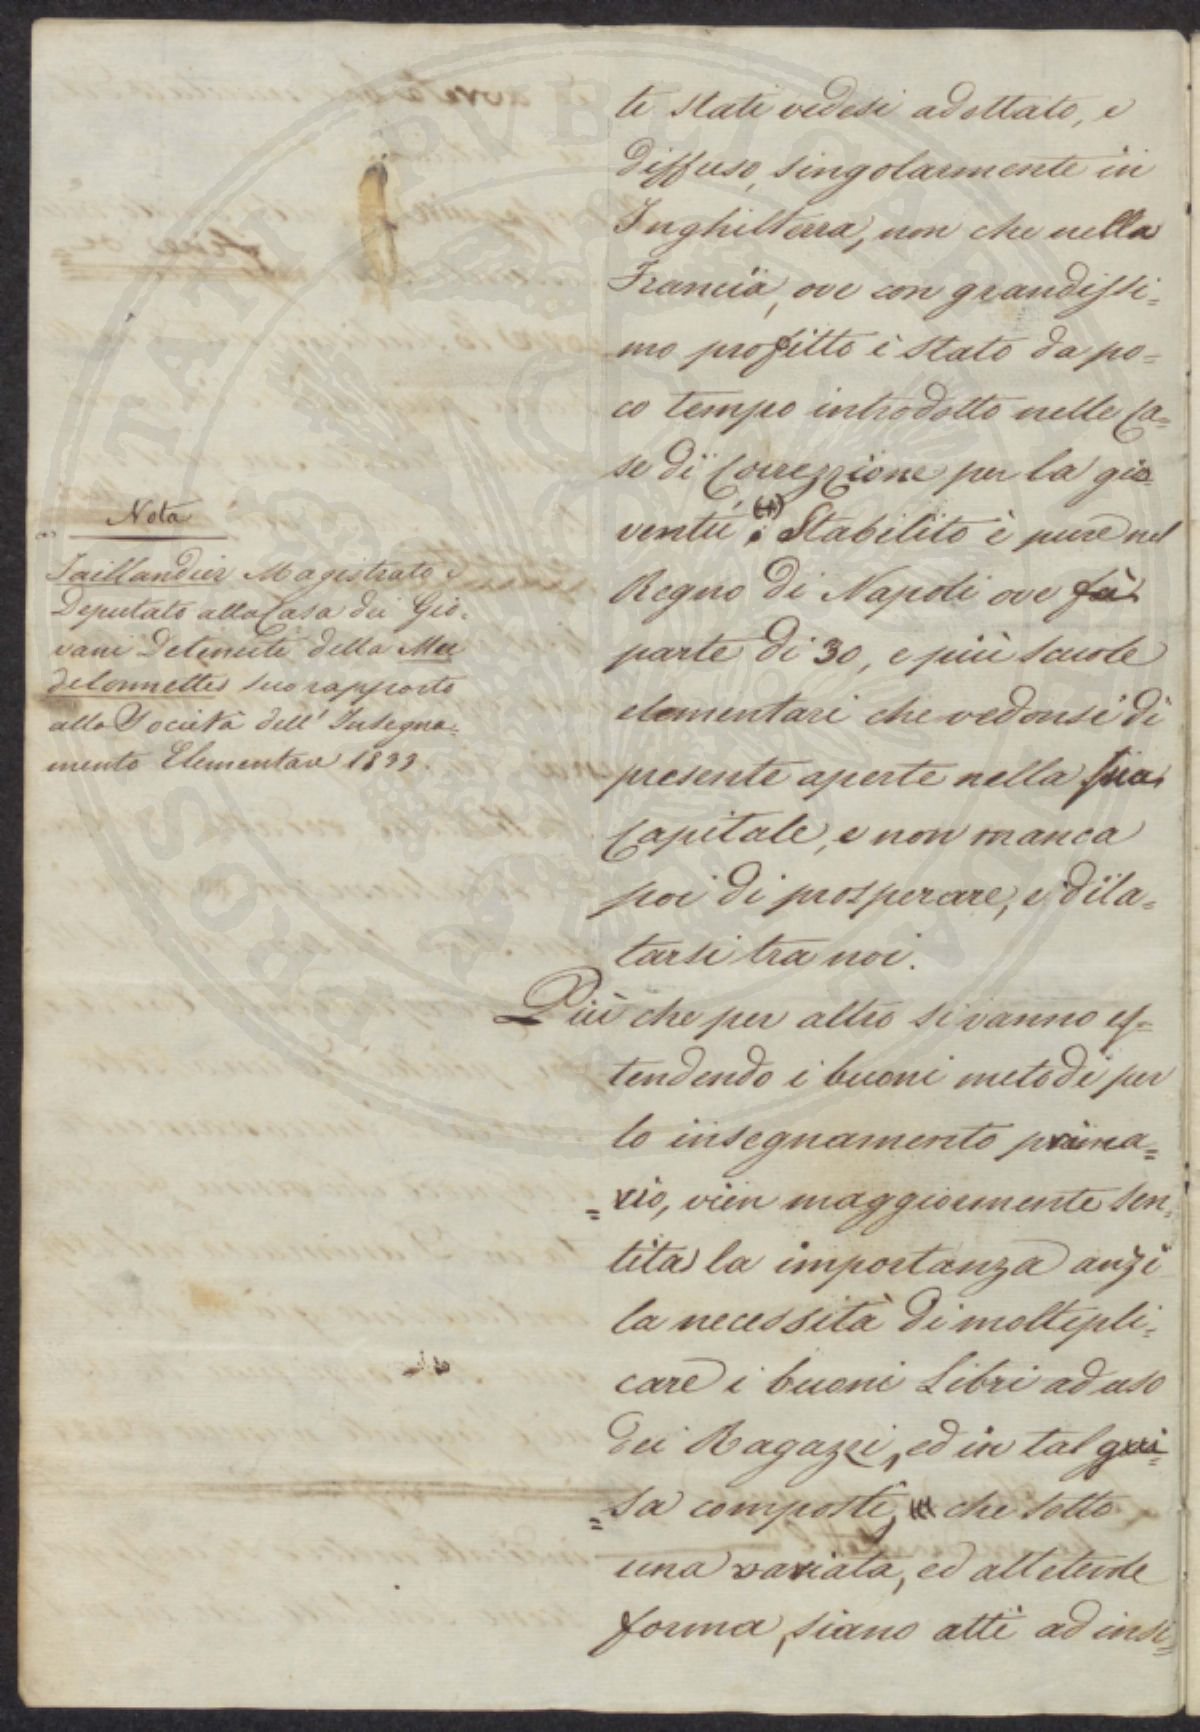 te stati vedesi adottato, e
diffuso, singolarmente in
Inghilterra, non che nella
Francia, ove con grandissi=
mo profitto è stato da po=
co tempo introdotto nelle Ca=
se di Correzzione per la gio=
ventù (+) Stabilito è pure nel
Regno di Napoli ove fà
parte di 30, e più scuole
elementari che vedonsi di
presente aperte nella sua
Capitale, e non manca
poi di prosperare, e dila=
tarsi tra noi.
Più che per altro si vanno es=
tendendo i buoni metodi per
lo insegnamento prima=
=rio, vien maggiormente sen=
tita la importanza anzi
la necessità di moltepli=
care i buoni Libri ad uso
dei Ragazzi, ed in tal gui=
=sa composti, che sotto
una variata, ed allettevole
forma, siano atti ad insi=
Nota
Taillandier Magistrato e
Deputato alla Casa dei Gio=
vani Detenuti della Ma
delonnettes suo rapporto
alla Società dell' Insegna=
mento Elementare 1833.
PROSPERITATI PVBLICAE